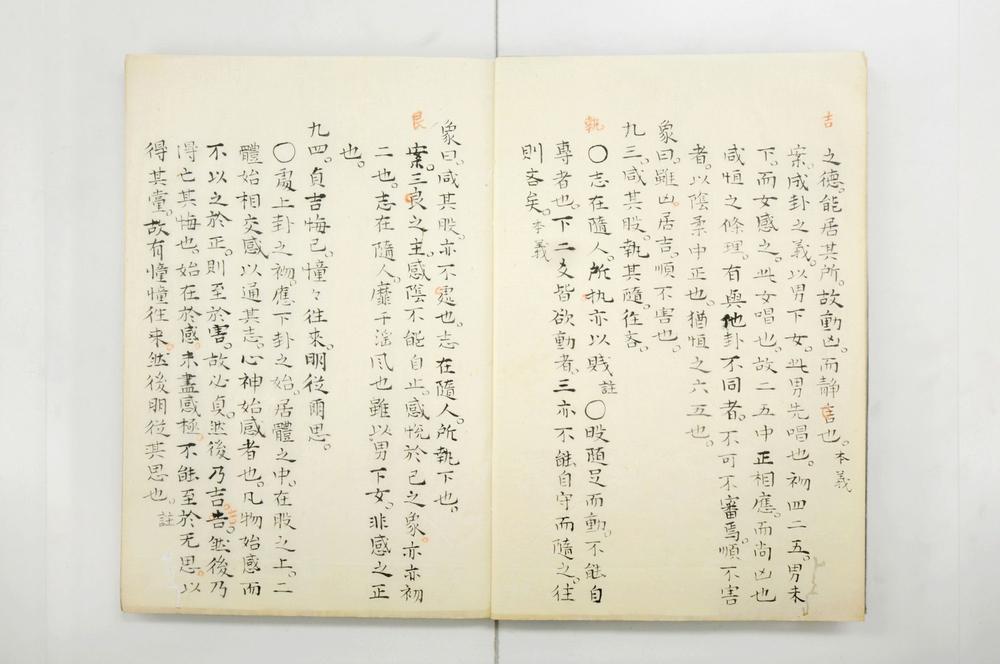 吉
之德。能居其所。故動凶。而静言也。本義
案。咸卦之義。以男下女。此男先唱也。初四二五。男未
下。而女感之。此女唱也。故二五中正相應。而尚凶也
咸恒之條理。有與他卦不同者。不可不審焉。順不害
者。以陰柔中正也。猶恒之六五也。
象曰。雖凶居吉。順不害也。
九三。咸其股。執其隨。往吝。
執
〇志在隨人。所执亦以賤 註〇股随足而動。不能自
專者也。下二爻皆欲動者。三亦不能自守而隨之。往
則吝矣。本義
象曰。咸其股。亦不處也。志在隨人。所執下也。
艮
案。三良之主。感陰不能自止。感悦於己之象。亦亦初
二也。志在隨人。靡千滛風也雖以男下女。非感之正
也。
九四。貞吉悔已。憧々往来。朋從爾思。
〇處上卦之初。應下卦之始。居體之中。在股之上。二
體始相交感以通其志。心神始感者也。凡物始感而
不以之於正。則至於害。故必貞。然後乃吉。吉。然後乃
得亡其悔也。始在於感。未盡感極。不能至於无思。以
得其黨。故有憧憧往来。然後明從其思也。註